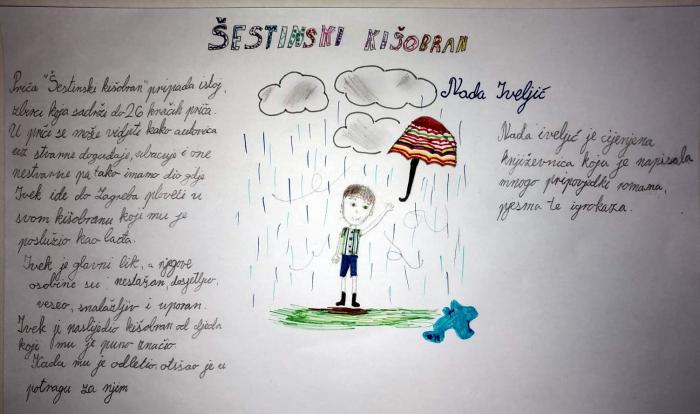 ŠESTINSKI KIŠOBRAN
Nada Iveljić
Priča "Šestinski kišobran" pripada istoj
zbirci koja sadrži do 26 kraćak priča.
U priči se može vidjeti kako autorica
uz stvarne događaje, ubacuje i one
nestvarne pa tako imamo dio gdje
Ivek ide do Zagreba ploveći u
svom kišobranu koji mu je
poslužio kao lađa.
Ivek je glavni lik, a njegove
osobine su: nestašan, dosjetljiv,
veseo, snalažljiv i uporan.
Ivek je naslijedio kišobran od djeda
koji mu je puno značio.
Kada mu je odletio, otišao je u
potragu za njim
Nada iveljić je cijenjena
književnica koja je napisala
mnogo pripovjedki romana,
pjesma te igrokaza.